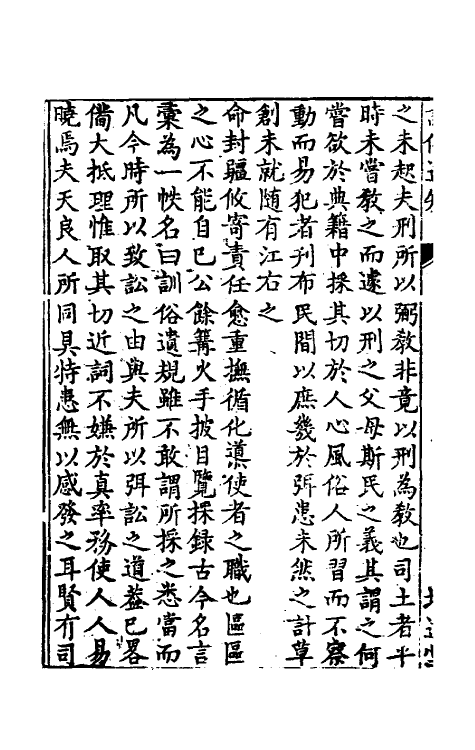 之未起夫刑所以弼教非竟以刑為教也司土者平
時未嘗教之而遽以刑之父母斯民之義其謂之何
嘗欲於典籍中採其切於人心風俗人所習而不察
動而易犯者刊布民間以庶幾於弭患未然之計草
創未就隨有江右之
命封疆攸寄責任愈重撫循化導使者之職也區區
之心不能自已公餘篝火手披目覽採録古今名言
彚為一帙名曰訓俗遺規雖不敢謂所採之悉當而
凡今時所以致訟之由與夫所以弭訟之道葢已畧
備大抵理惟取其切近詞不嫌於真率務使人人易
曉焉夫天良人所同具特患無以感發之耳賢有司